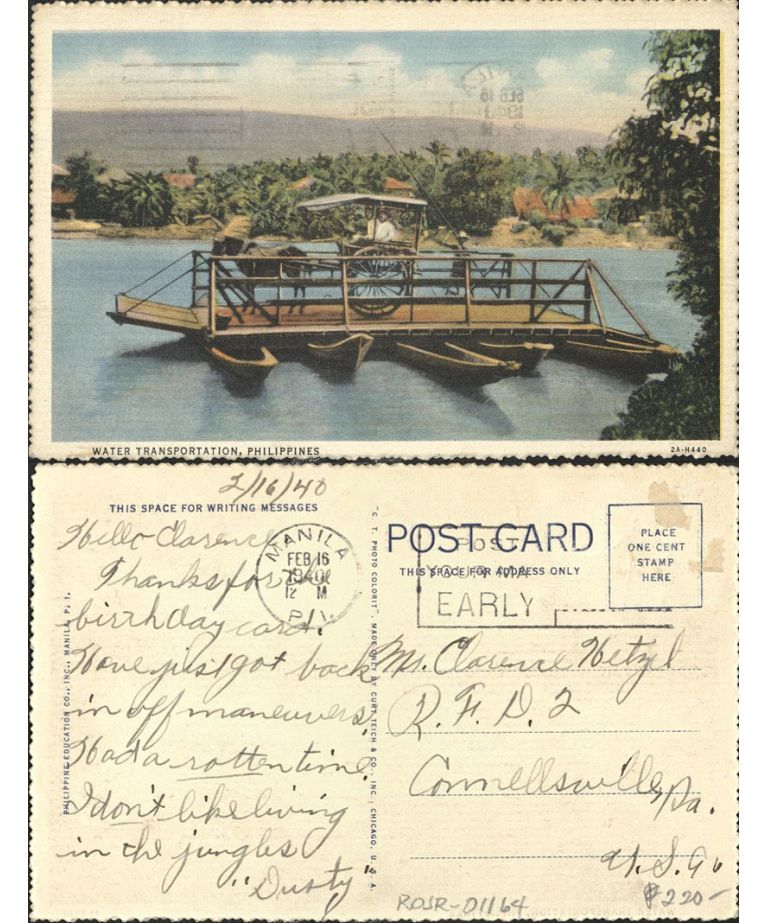 WATER TRANSPORTATION, PHILIPPINES
2A-H440
2/16/40
THIS SPACE FOR WRITING MESSAGES
Hello Clarence
Thanks for
birthday card.
Have just got back
in off maneuvers,
Had a rotten time.
I don't like living
in the jungles
"Dusty"
MANILA
FEB 16
1940
12 M
P.I.
PHILIPPINE EDUCATION CO., INC., MANILA, P. I.
"C. T. PHOTO COLORIT" MADE ONLY BY CURT TEICH & CO., INC., CHICAGO, U. S. A.
POST CARD
THIS SPACE FOR ADDRESS ONLY
POST
YOUR
EARLY
PLACE
ONE CENT
STAMP
HERE
Mr. Clarence Hetzel
R. F. D. 2
Connellsville, Pa.
U. S. A.
ROSR-01164
₱220-